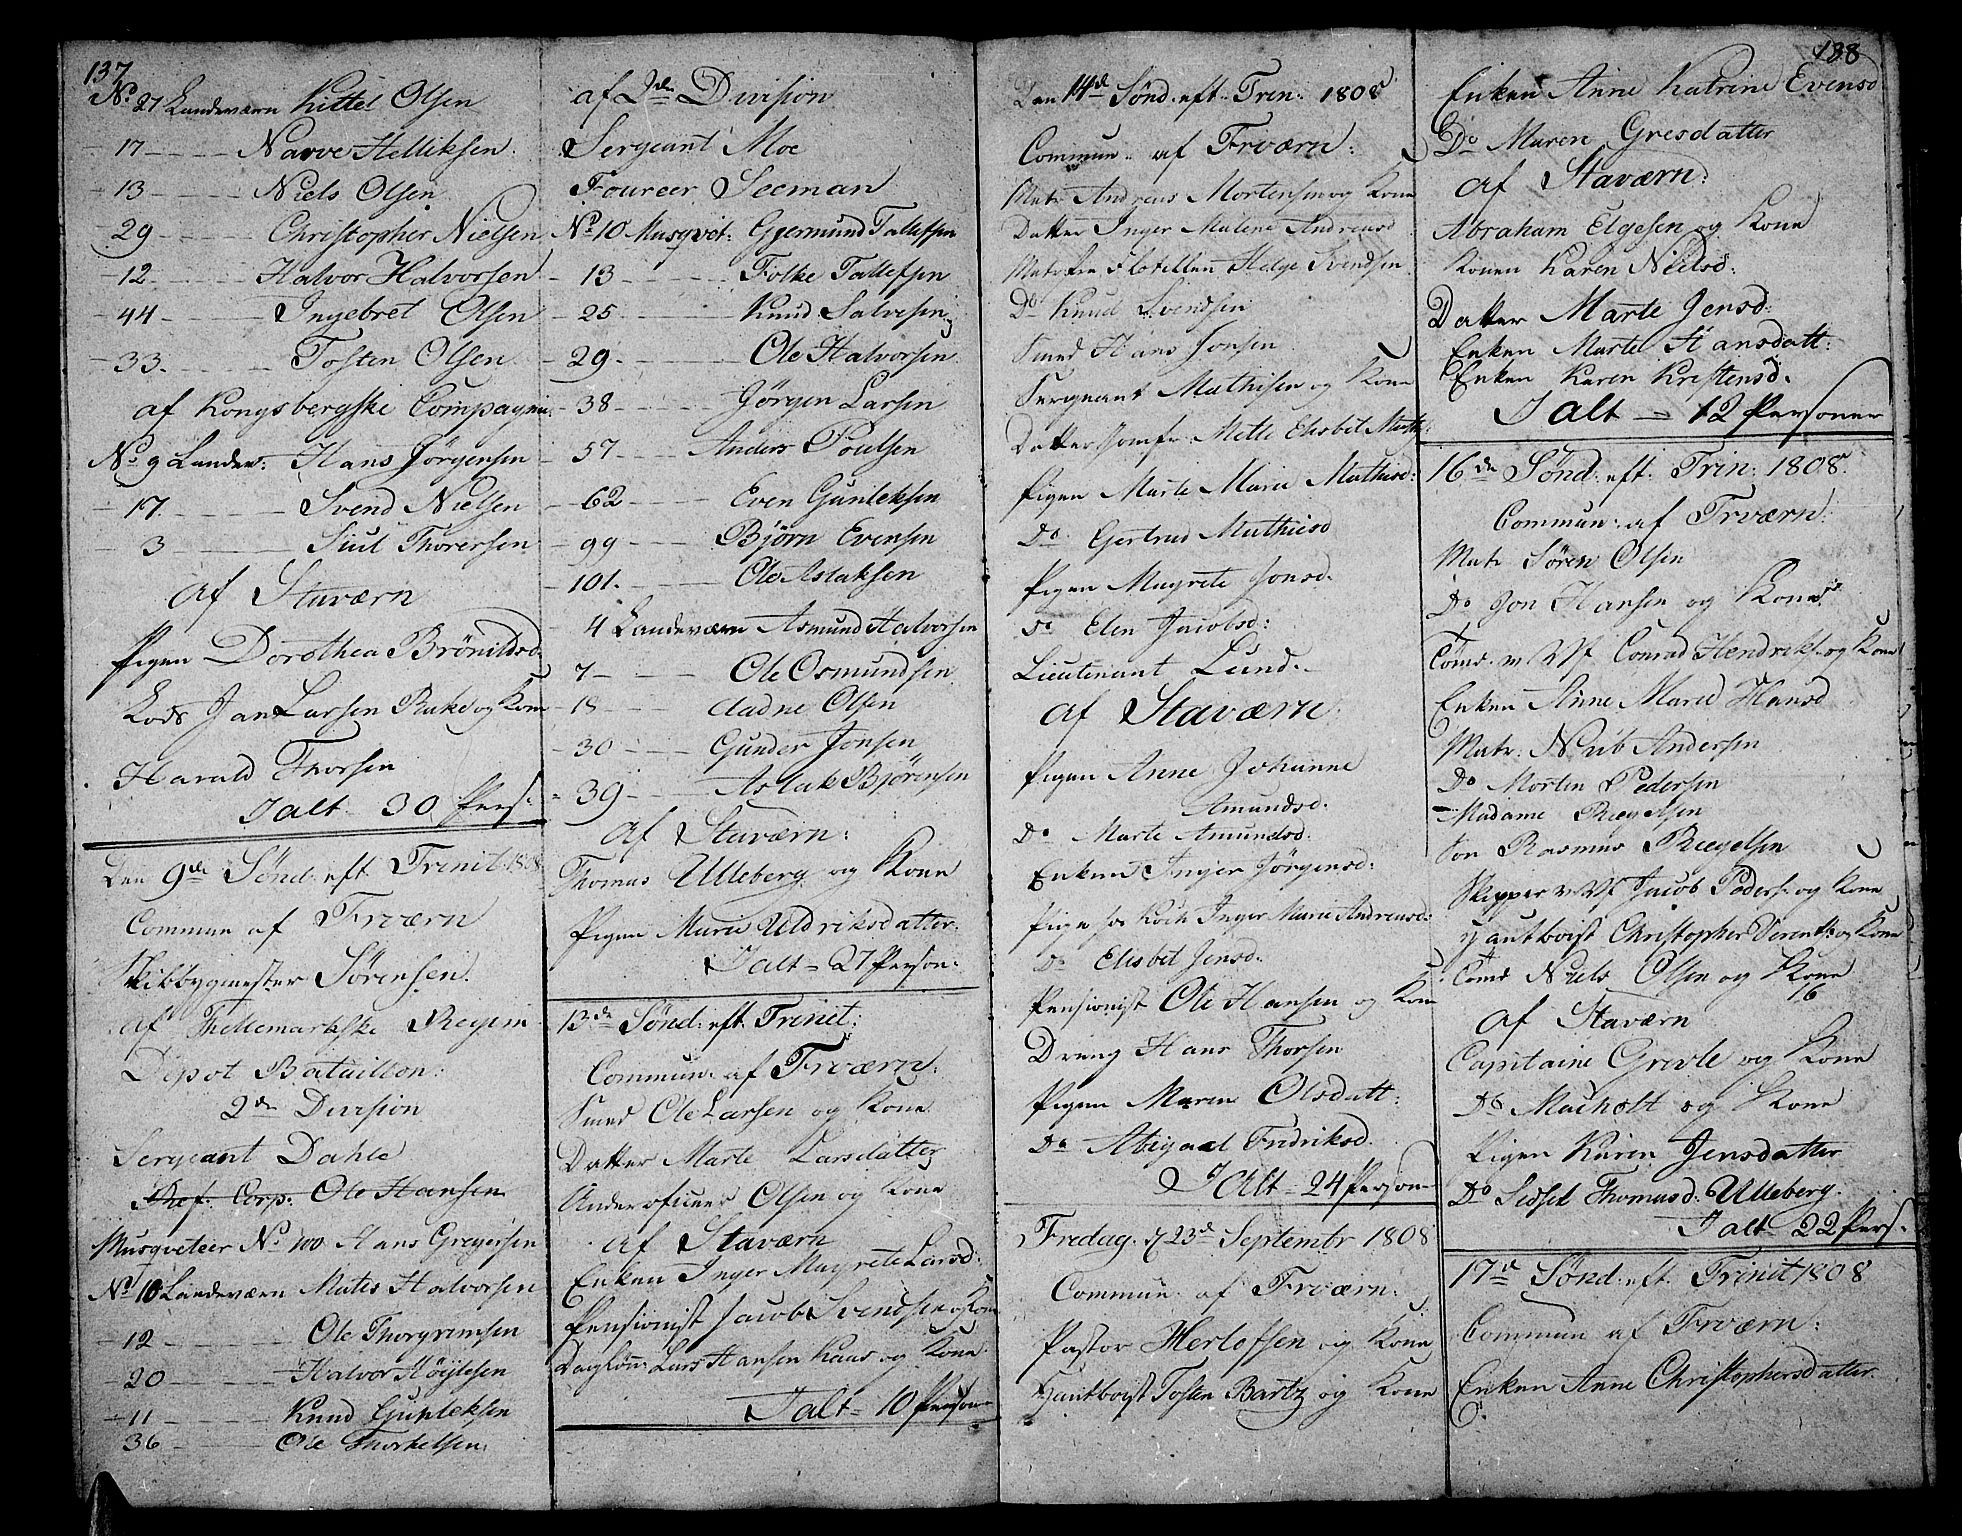 137
No 27 Landeværn Kittel Olsen
- 17 - - - Narve Helliksen
- 13 - - - Niels Olsen
29 - - - Christopher Nielsen
- 12 - - - Halvor Halvorsen
- 44 - - - Ingebret Olsen
- 33 - - - Tosten Olsen
af Kongsbergske Compagnie
No 9 Landev: Hans Jørgensen
- 17 - - - Svend Nielsen
- 3 - - - Siul Thorersen
af Staværn
Pigen Dorothea Brönildsd.
Jan Larsen Bake og Kone
Harald Thorsen
Ialt 30 Pers:
Den 9de Sönd: eft Trinit: 1808
Commun af Frværn
Skibbygmester Sörensen
af Thellemarkske Regim
Depot Bataillon:
2de Division
Sergeant Dahle
Corp: Ole Hansen
Musqveteer No 100 Hans Gregersen
No 10 Landeværn Mates Halvorsen
- 12 - - - Ole Thorgrimsen
- 20 - - - Halvor Höijesen
- 11 - - - Knud Gunleksen
36 - - - Ole Thorkelsen
af 2den Division
Sergeant Moe
Foureer Seeman
No 10 Musqvet: Gjermund Tallefsen
- 13 - - - Folke Tallefsen
- 25 - - - Knud Salvesen
- 29 - - - Ole Halvorsen
- 38 - - - Jörgen Larsen
- 57 - - - Anders Poulsen
- 62 - - - Even Gunleksen
- 99 - - - Björn Evensen
- 101 - - - Ole Aslaksen
- 4 Landeværn Asmund Halvorsen
- 7 - - - Ole Osmundsen
- 18 - - - Aadne Olsen
- 30 - - - Gunder Jonsen
- 39 - - - Aslak Björensen
af Staværn:
Thomas Ulleberg og Kone
Pigen Marie Uldriksdatter
Ialt = 27 Person:
13de Sönd: eft. Trinit:
Commun: af Frværn:
Smed Ole Larsen og Kone
Datter Marte Larsdatter
Underoficeer Olsen og Kone
af Staværn
Enken Inger Magrete Larsd:
Pensionist Jacob Svendsen og Kone
Daglön: Lars Hansen Kaas og Kone
Ialt = 10 Person
Den 14de Sönd: eft: Trin: 1808
Commun: af Frværn:
Matr Andreas Mortensen og Kone
Datter Inger Malene Andreasd
Matr fra Flotillen Helge Svendsen
Do Knud Svendsen
Smed Hans Jonsen
Sergeant Mathisen og Kone
Datter Jomfr: Mette Elisbet Math:
Pigen Marte Marie Mathisd:
Do Gertrud Mathiesd
Pigen Magrete Jonsd.
Do Elen Jacobsd:
Lieutenant Lund.
af Staværn
Pigen Anne Johanne
Amundsd.
Do Marte Amundsd.
Enken Inger Jörgensd:
Pige Inger Marie Andreasd:
Do Elisbet Jensd.
Pensionist Ole Hansen og Kone
Dreng Hans Thorsen
Pigen Maren Olsdatt:
Do Abigael Fredriksd.
Ialt = 24 Person
Fredag d 23d Septembr 1808
Commun: af Frværn:
Pastor Herlofsen og Kone
Hautboist Tosten Bartz og Kone
138
Enken Anne Katrine Evensd
Do Maren Gresdatter
af Staværn:
Abraham Elgesen og Kone
Konen Karen Nielsd:
Datter Marte Jensd:
Enken Marte Hansdatt:
Enken Karen Kristensd.
Ialt = 12 Personer
16de Sönd: eft: Trin: 1808
Commun: af Frværn:
Matr Sören Olsen
Do Jon Hansen og Kone
Conrad Hendriks: og Kone
Enken Anne Marie Hansd
Matr: Andersen
Do Morten Pedersen
Madame Regelsen
Son Rasmus Regelsen
Skipper v Vf Jacob Peders: og Kone
Hautboist Christopher Berents: og Kone
Niels Olsen og Kone
16
af Staværn
Capitaine Grevle og Kone
Do Macholt og Kone
Pigen Karen Jensdatter
Do Sidsel Thomasd: Ulleberg.
Ialt 22 Pers:
17de Sönd: eft. Trinit 1808
Commun af Frværn:
Enken Anne Christophersdatter